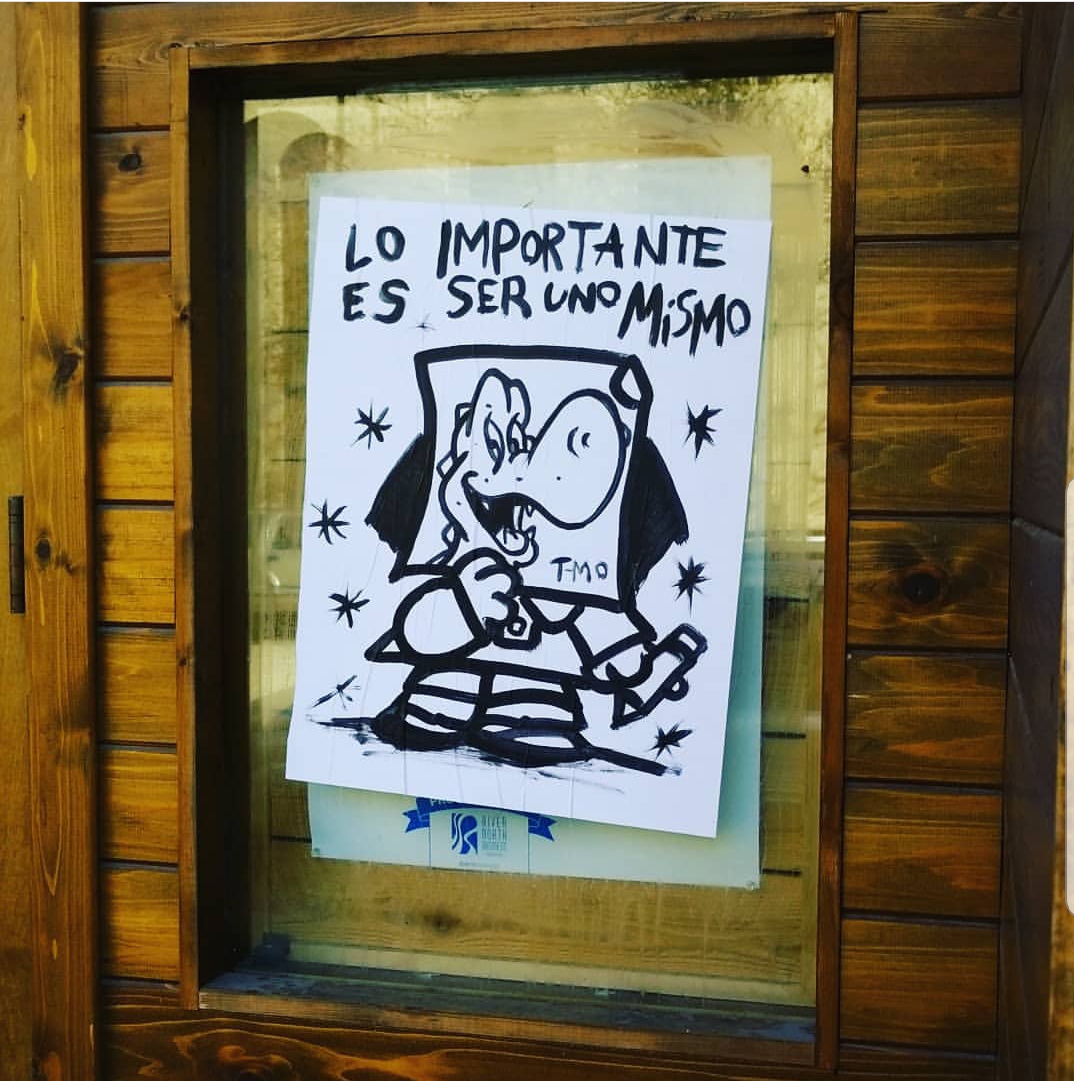 LO IMPORTANTE
ES SER UNO MiSMO
T-MO
RIVER
NORTH